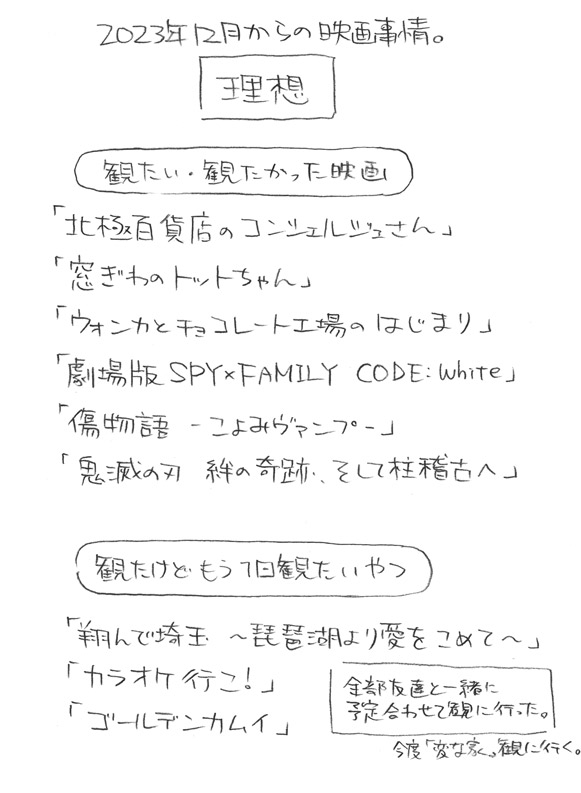 2023年12月からの映画事情。
理想
観たい・観たかった映画
「北極百貨店のコンシェルジュさん」
「窓ぎわのトットちゃん」
「ウォンカとチョコレート工場のはじまり」
「劇場版 SPY×FAMILY CODE:White」
「傷物語 -こよみヴァンプ-」
「鬼滅の刃 絆の奇跡、そして柱稽古へ」
観たけどもう1回観たいやつ
「翔んで埼玉 ～琵琶湖より愛をこめて～」
「カラオケ行こ!」
「ゴールデンカムイ」
全部友達と一緒に
予定合わせて観に行った。
今度「変な家」観に行く。